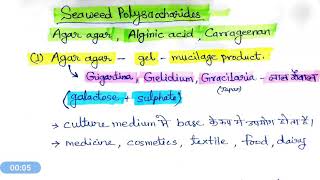 Seaweed Polysaccharides
Agar agar, Alginic acid, Carrageenan
(1) Agar agar - gel - mucilage product.
↳ Grigartina, Gelidium, Gracilaria - लाल शैवाल
(galactose + sulphate)
→ culture medium में base के रूप में उपयोग होता है।
→ medicine, cosmetics, textile, food, dairy
00:05